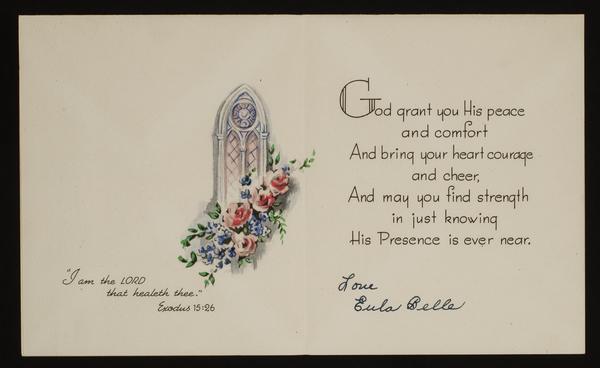 "I am the LORD
that healeth thee."
Exodus 15:26
God grant you His peace
and comfort
And bring your heart courage
and cheer,
And may you find strength
in just knowing
His Presence is ever near.
Love
Eula Belle